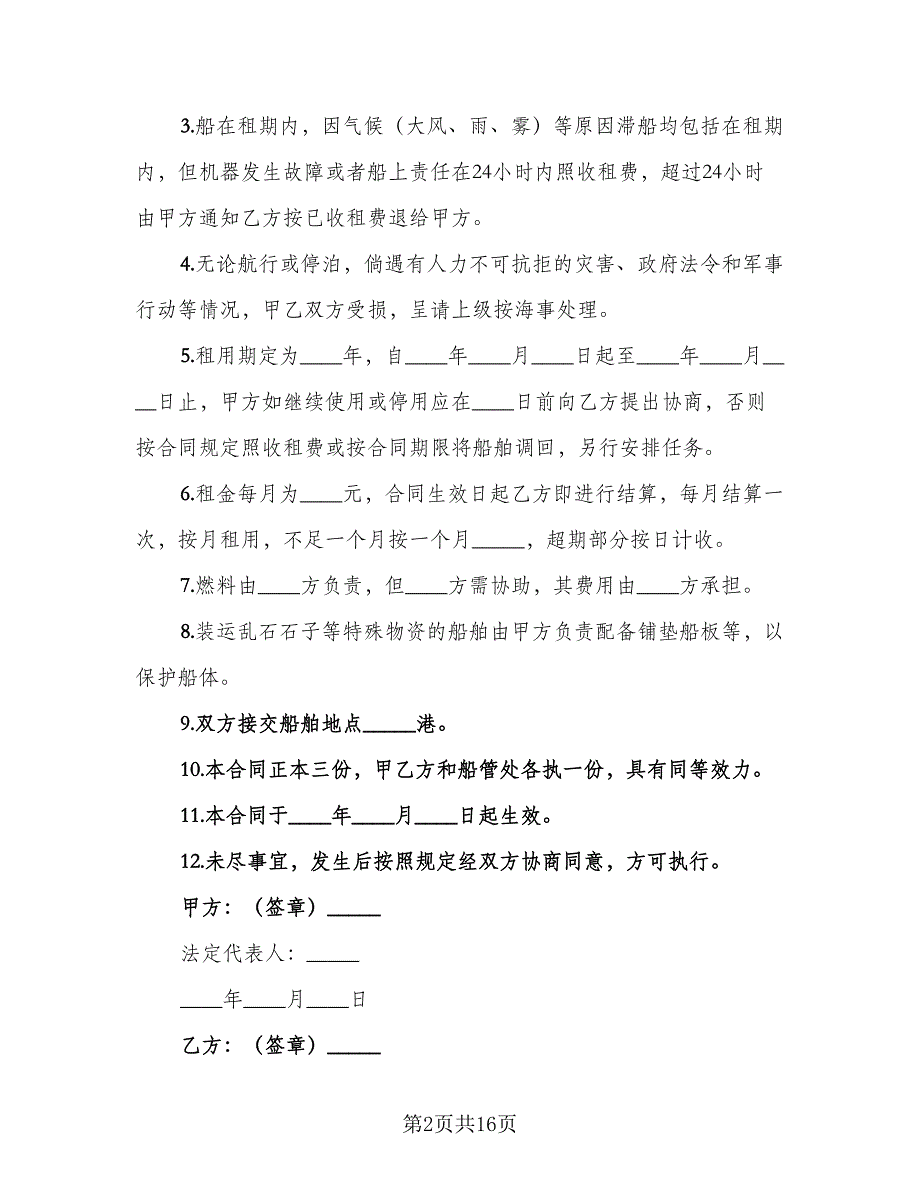 3.船在租期内，因气候（大风、雨、雾）等原因滞船均包括在租期
内，但机器发生故障或者船上责任在24小时内照收租费，超过24小时
由甲方通知乙方按已收租费退给甲方。
4.无论航行或停泊，倘遇有人力不可抗拒的灾害、政府法令和军事
行动等情况，甲乙双方受损，呈请上级按海事处理。
5.租用期定为____年，自____年____月____日起至____年____月__
__日止，甲方如继续使用或停用应在____日前向乙方提出协商，否则
按合同规定照收租费或按合同期限将船舶调回，另行安排任务。
6.租金每月为____元，合同生效日起乙方即进行结算，每月结算一
次，按月租用，不足一个月按一个月_____，超期部分按日计收。
7.燃料由____方负责，但____方需协助，其费用由____方承担。
8.装运乱石石子等特殊物资的船舶由甲方负责配备铺垫船板等，以
保护船体。
9.双方接交船舶地点_____港。
10.本合同正本三份，甲乙方和船管处各执一份，具有同等效力。
11.本合同于____年____月____日起生效。
12.未尽事宜，发生后按照规定经双方协商同意，方可执行。
甲方：（签章）_____
法定代表人：_____
____年____月____日
乙方：（签章）_____
第2页共16页